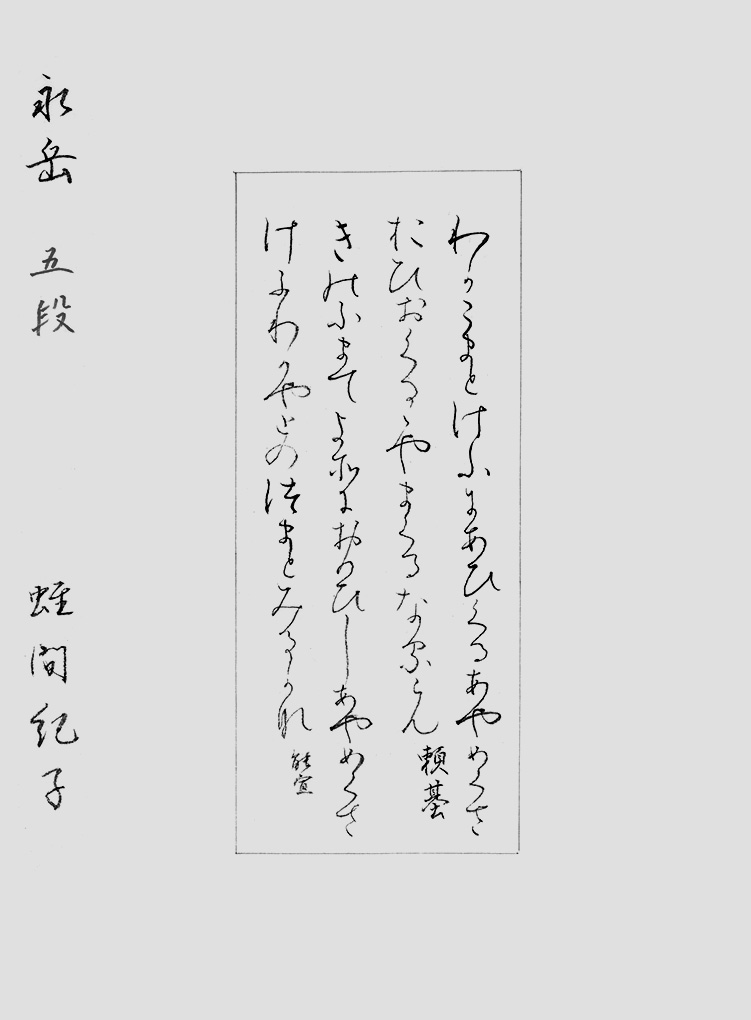 わかこまとけふにあひくるあやめくさ
おひおくるゝやまくるなるらん 頼基
きのふまてよそにおもひしあやめくさ
けふわかやとのつまとみるかな 能宣
永岳 五段 蛭間紀子